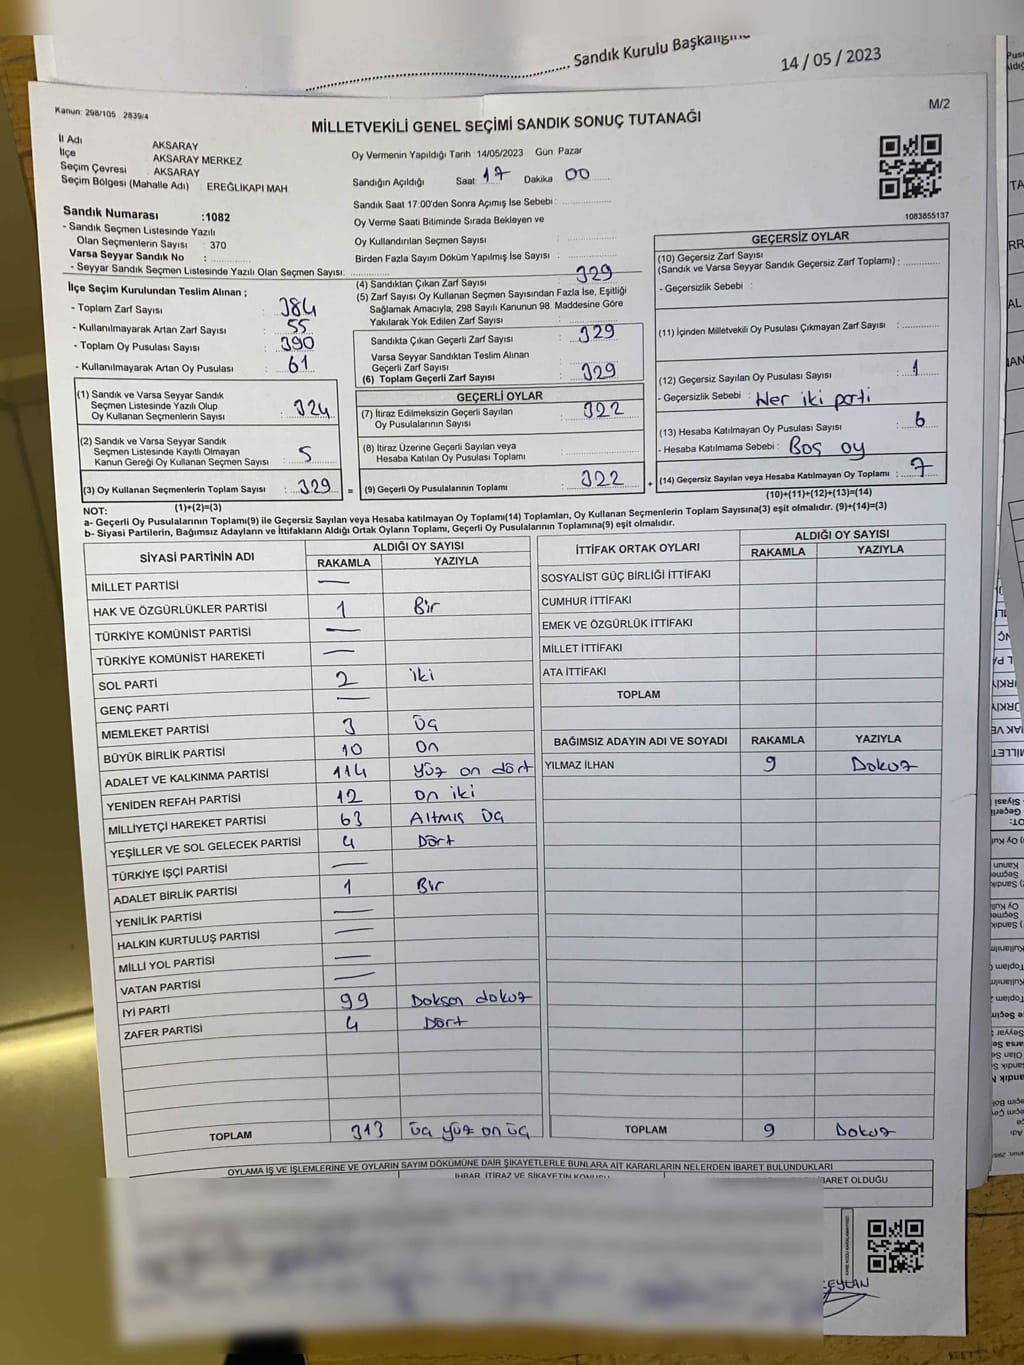 Sandık Kurulu Başkanlığına
14 / 05 / 2023
Kanun: 298/105 2839/4
M/2
MİLLETVEKİLİ GENEL SEÇİMİ SANDIK SONUÇ TUTANAĞI
İl Adı AKSARAY
İlçe AKSARAY MERKEZ
Seçim Çevresi : AKSARAY
Seçim Bölgesi (Mahalle Adı) : EREĞLIKAPI MAH
Oy Vermenin Yapıldığı Tarih :14/05/2023 Gün Pazar
Sandığın Açıldığı Saat 17 Dakika 00
Sandık Saat 17:00'den Sonra Açımış İse Sebebi :
Oy Verme Saati Bitiminde Sırada Bekleyen ve
Oy Kullandırılan Seçmen Sayısı
Birden Fazla Sayım Döküm Yapılmış İse Sayısı :
1083855137
Sandık Numarası :1082
- Sandık Seçmen Listesinde Yazılı
Olan Seçmenlerin Sayısı : 370
Varsa Seyyar Sandık No :
- Seyyar Sandık Seçmen Listesinde Yazılı Olan Seçmen Sayısı:
İlçe Seçim Kurulundan Teslim Alınan ;
- Toplam Zarf Sayısı : 384
- Kullanılmayarak Artan Zarf Sayısı : 55
- Toplam Oy Pusulası Sayısı : 390
- Kullanılmayarak Artan Oy Pusulası : 61
(1) Sandık ve Varsa Seyyar Sandık
Seçmen Listesinde Yazılı Olup
Oy Kullanan Seçmenlerin Sayısı : 324
(2) Sandık ve Varsa Seyyar Sandık
Seçmen Listesinde Kayıtlı Olmayan
Kanun Gereği Oy Kullanan Seçmen Sayısı : 5
(3) Oy Kullanan Seçmenlerin Toplam Sayısı : 329
(1)+(2)=(3)
(4) Sandıktan Çıkan Zarf Sayısı : 329
(5) Zarf Sayısı Oy Kullanan Seçmen Sayısından Fazla İse, Eşitliği
Sağlamak Amacıyla; 298 Sayılı Kanunun 98. Maddesine Göre
Yakılarak Yok Edilen Zarf Sayısı :
Sandıkta Çıkan Geçerli Zarf Sayısı : 329
Varsa Seyyar Sandıktan Teslim Alınan
Geçerli Zarf Sayısı :
(6) Toplam Geçerli Zarf Sayısı : 329
GEÇERLİ OYLAR
(7) İtiraz Edilmeksizin Geçerli Sayılan
Oy Pusulalarının Sayısı : 322
(8) İtiraz Üzerine Geçerli Sayılan veya
Hesaba Katılan Oy Pusulası Toplamı :
= (9) Geçerli Oy Pusulalarının Toplamı : 322 +
GEÇERSİZ OYLAR
(10) Geçersiz Zarf Sayısı
(Sandık ve Varsa Seyyar Sandık Geçersiz Zarf Toplamı) :
- Geçersizlik Sebebi :
(11) İçinden Milletvekili Oy Pusulası Çıkmayan Zarf Sayısı :
(12) Geçersiz Sayılan Oy Pusulası Sayısı : 1
- Geçersizlik Sebebi : Her iki parti
(13) Hesaba Katılmayan Oy Pusulası Sayısı : 6
- Hesaba Katılmama Sebebi : Boş oy
(14) Geçersiz Sayılan veya Hesaba Katılmayan Oy Toplamı : 7
(10)+(11)+(12)+(13)=(14)
NOT:
a- Geçerli Oy Pusulalarının Toplamı(9) ile Geçersiz Sayılan veya Hesaba katılmayan Oy Toplamı(14) Toplamları, Oy Kullanan Seçmenlerin Toplam Sayısına(3) eşit olmalıdır. (9)+(14)=(3)
b- Siyasi Partilerin, Bağımsız Adayların ve İttifakların Aldığı Ortak Oyların Toplamı, Geçerli Oy Pusulalarının Toplamına(9) eşit olmalıdır.
SİYASİ PARTİNİN ADI ALDIĞI OY SAYISI
RAKAMLA YAZIYLA
MİLLET PARTİSİ —
HAK VE ÖZGÜRLÜKLER PARTİSİ 1 Bir
TÜRKİYE KOMÜNİST PARTİSİ —
TÜRKİYE KOMÜNİST HAREKETİ —
SOL PARTİ 2 iki
GENÇ PARTİ —
MEMLEKET PARTİSİ 3 üç
BÜYÜK BİRLİK PARTİSİ 10 on
ADALET VE KALKINMA PARTİSİ 114 yüz on dört
YENİDEN REFAH PARTİSİ 12 on iki
MİLLİYETÇİ HAREKET PARTİSİ 63 Altmış üç
YEŞİLLER VE SOL GELECEK PARTİSİ 4 Dört
TÜRKİYE İŞÇİ PARTİSİ —
ADALET BİRLİK PARTİSİ 1 Bir
YENİLİK PARTİSİ —
HALKIN KURTULUŞ PARTİSİ —
MİLLİ YOL PARTİSİ —
VATAN PARTİSİ —
İYİ PARTİ 99 Doksan dokuz
ZAFER PARTİSİ 4 Dört
TOPLAM 313 üç yüz on üç
İTTİFAK ORTAK OYLARI ALDIĞI OY SAYISI
RAKAMLA YAZIYLA
SOSYALİST GÜÇ BİRLİĞİ İTTİFAKI
CUMHUR İTTİFAKI
EMEK VE ÖZGÜRLÜK İTTİFAKI
MİLLET İTTİFAKI
ATA İTTİFAKI
TOPLAM
BAĞIMSIZ ADAYIN ADI VE SOYADI RAKAMLA YAZIYLA
YILMAZ İLHAN 9 Dokuz
TOPLAM 9 Dokuz
OYLAMA İŞ VE İŞLEMLERİNE VE OYLARIN SAYIM DÖKÜMÜNE DAİR ŞİKAYETLERLE BUNLARA AİT KARARLARIN NELERDEN İBARET BULUNDUKLARI
İHBAR, İTİRAZ VE ŞİKAYETİN KONUSU
İBARET OLDUĞU